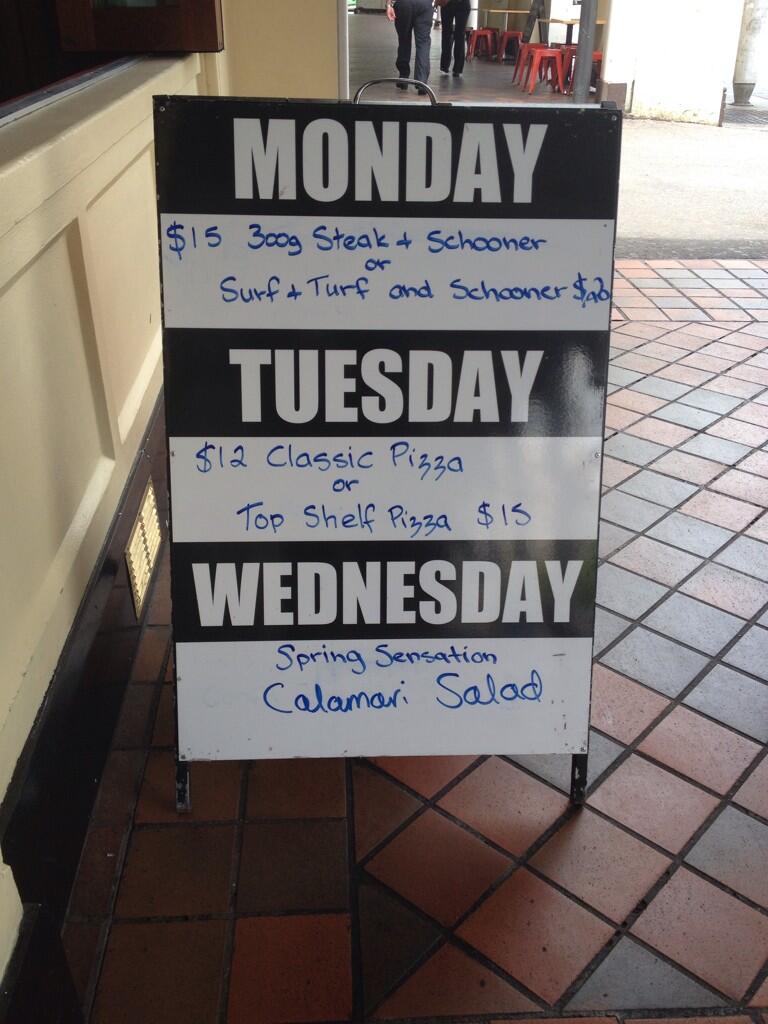 MONDAY
$15 300g Steak + Schooner
or
Surf + Turf and Schooner $20
TUESDAY
$12 Classic Pizza
or
Top Shelf Pizza $15
WEDNESDAY
Spring Sensation
Calamari Salad